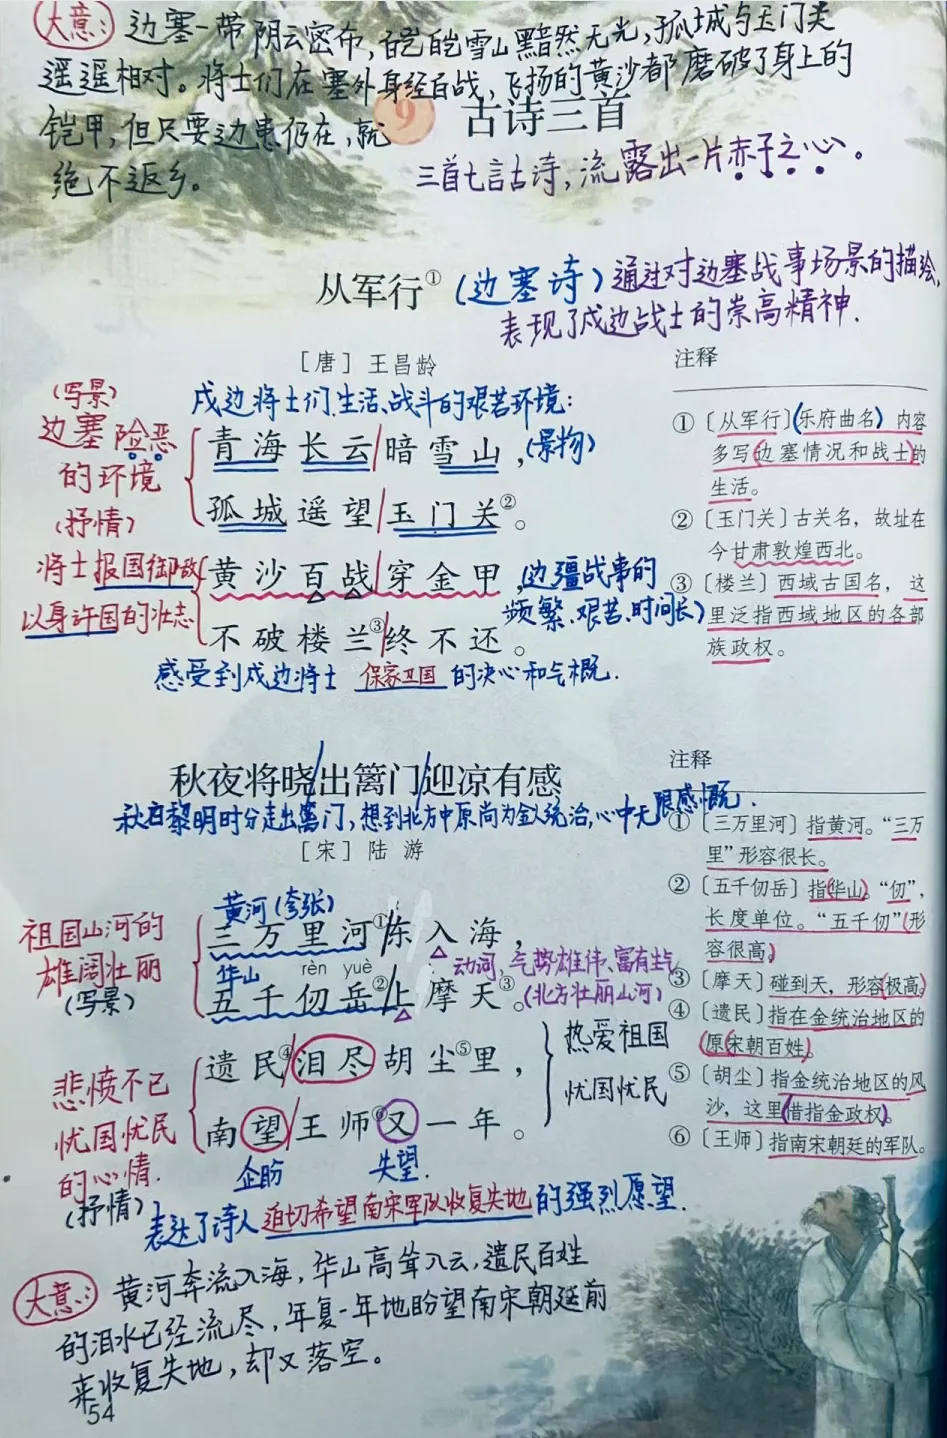 大意: 边塞一带阴云密布,皑皑雪山黯然无光,孤城与玉门关
遥遥相对。将士们在塞外身经百战,飞扬的黄沙都磨破了身上的
铠甲,但只要边患仍在,就
绝不返乡。
9 古诗三首
三首七言古诗,流露出一片赤子之心。
从军行① (边塞诗) 通过对边塞战事场景的描绘,
表现了戍边战士的崇高精神.
[唐] 王昌龄
戍边将士们生活、战斗的艰苦环境:
(写景)
边塞险恶
的环境
青海长云/暗雪山,(景物)
孤城遥望/玉门关②。
(抒情)
将士报国御敌
以身许国的壮志
黄沙百战/穿金甲,
不破楼兰③/终不还。
边疆战事的
频繁、艰苦、时间长)
感受到戍边将士 保家卫国 的决心和气概.
注释
①〔从军行〕(乐府曲名) 内容
多写(边塞情况和战士)的
生活。
②〔玉门关〕古关名,故址在
今甘肃敦煌西北。
③〔楼兰〕西域古国名,这
里泛指西域地区的各部
族政权。
秋夜将晓/出篱门/迎凉有感
秋夜黎明时分走出篱门,想到北方中原尚为金人统治,心中无限感慨.
[宋] 陆游
祖国山河的
雄阔壮丽
(写景)
黄河(夸张)
三万里河①/东入海,
华山 rèn yuè
五千仞岳②/上摩天③。
动词,气势雄伟、富有生气
(北方壮丽山河)
悲愤不已
忧国忧民
的心情.
(抒情)
遗民④/泪尽胡尘⑤里,
南望/王师⑥又一年。
企盼 失望.
热爱祖国
忧国忧民
表达了诗人迫切希望南宋军队收复失地的强烈愿望.
注释
①〔三万里河〕指黄河。“三万
里”形容很长。
②〔五千仞岳〕指(华山)。“仞”,
长度单位。“五千仞”(形
容很高)
③〔摩天〕碰到天,形容(极高)。
④〔遗民〕指在金统治地区的
原(宋朝百姓)。
⑤〔胡尘〕指金统治地区的风
沙,这里(借指金政权)。
⑥〔王师〕指南宋朝廷的军队。
大意: 黄河奔流入海,华山高耸入云,遗民百姓
的泪水已经流尽,年复一年地盼望南宋朝廷前
来收复失地,却又落空。
54